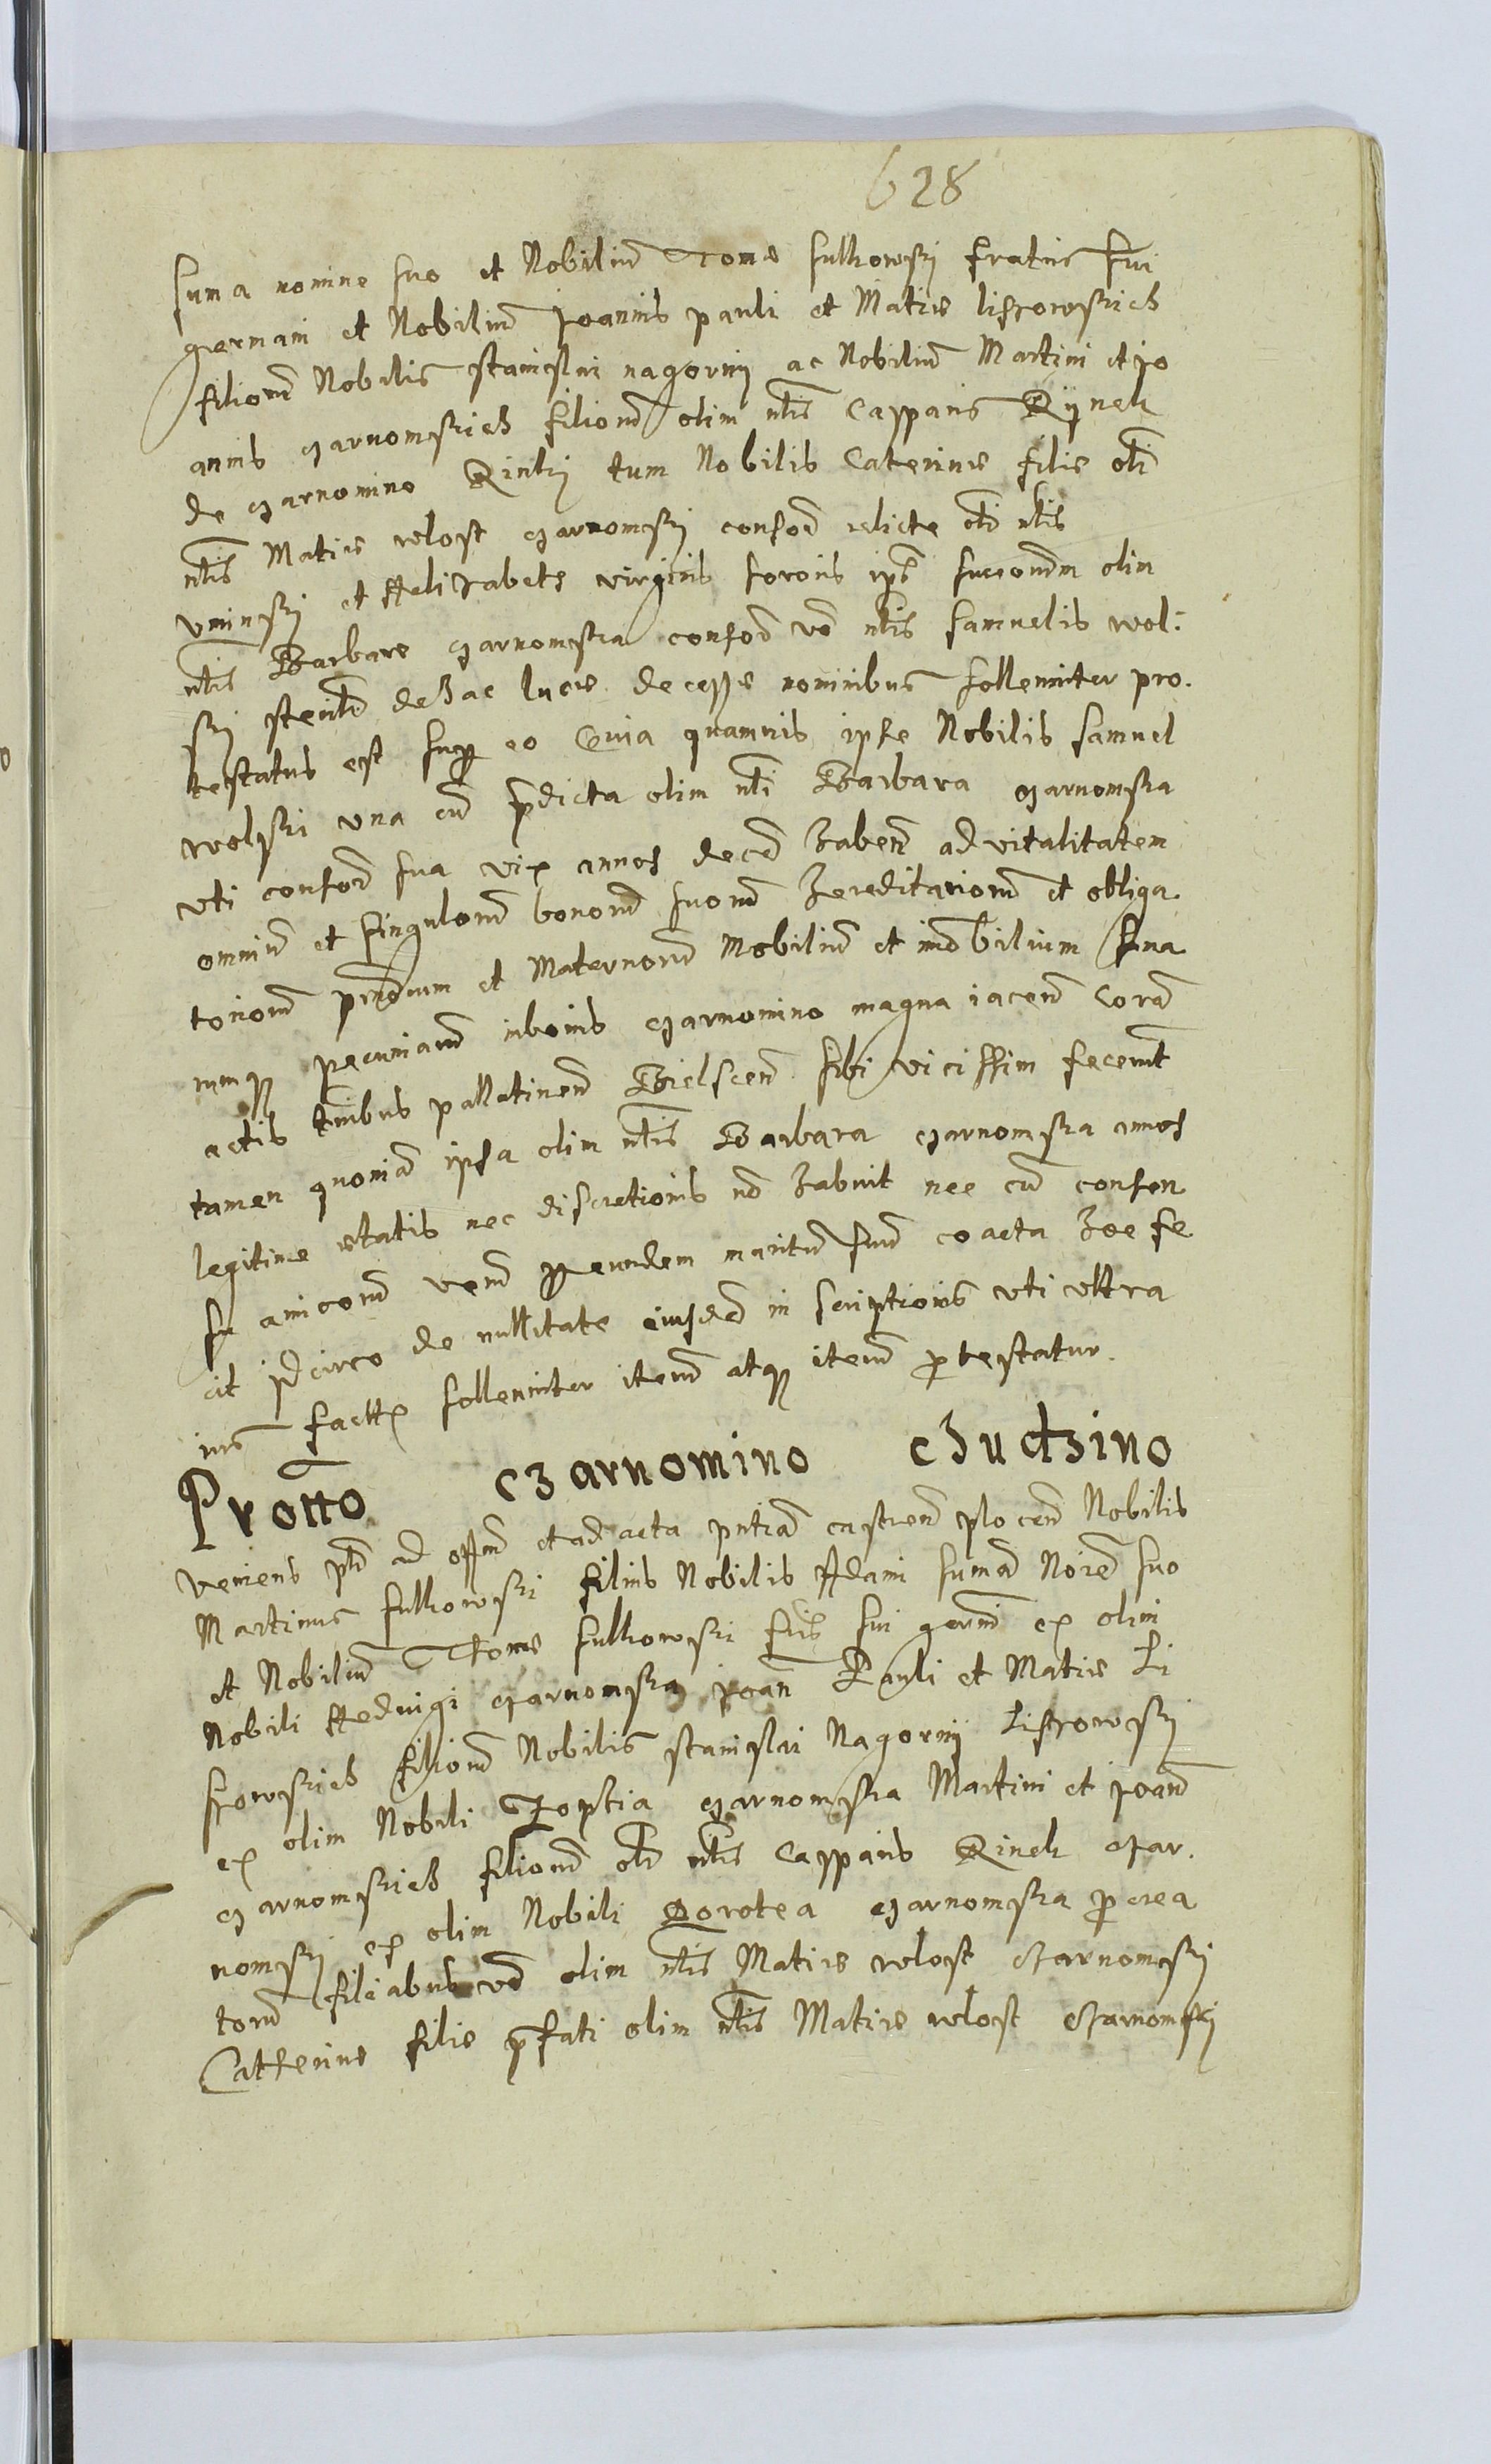 628
suma nomine suo et Nobiliū Tome sulkowski fratris sui
germani et Nobiliū Joannis pauli et Matie lis͠zowskich
filiorū Nobilis stanislai nagorny ac Nobiliū Martini et Jo
annis czarnomskich filiorū olim nlis Casparis Rynek
de czarnomino Rinky tum Nobilis Caterine filie oli
nlis Matie wlost czarnomsky consor relicte oli nlis
uminsky et Helizabete virginis sororis ips succorum olim
nlis Barbare czarnomska consor vō nlis samuelis wol:
sky sterilr de hac luce decesse nominibus sollenniter pro.
testatus est sup eo Quia quamvis ipse Nobilis samuel
wolski una cū pdicta olim nli Barbara czarnomska
uti consor sua vix annos decē haben advitalitatem
omniū et singulorū bonorū suorū hereditariorū et obliga
toriorū prnorum et Maternorū Mobiliū et imobilium suma
rumq pecuniarū in bonis czarnomino magna iacen Corā
actis tribus pallatinen Bielscen sibi vicissim fecerunt
tamen quoniā ipsa olim nlis Barbara czarnomska annos
legitime etatis nec discretionis nō habuit nec cū consen
su amicorū verū p eundem maritū suū coacta hoc fe
cit Idcirco de nullitate eiusdē inscriptionis uti ultra
ius factx sollenniter iterū atq iterū protestatur.
Protto czarnomino chudzino
veniens pls ad offm et ad acta pntia castren plocen Nobilis
Martinus sulkowski filius Nobilis Adami sumā Noie suo
et Nobiliū Thome sulkowski fris sui germi ex olim
Nobili Hedvigi czarnomska Joan Pauli et Matie Li
szowskich filiorū Nobilis stanislai Nagorny Liszowsky
ex olim Nobili Zophia czarnomska Martini et Joan
czarnomskich filiorū oli nlis Casparis Rinek czar.
nomsky ex olim Nobili Dorotea czarnomska procrea
torū filiabus vō olim nlis Matie wlost czarnomsky
Catherine filie pfati olim nlis Matie wlost czarnomsky